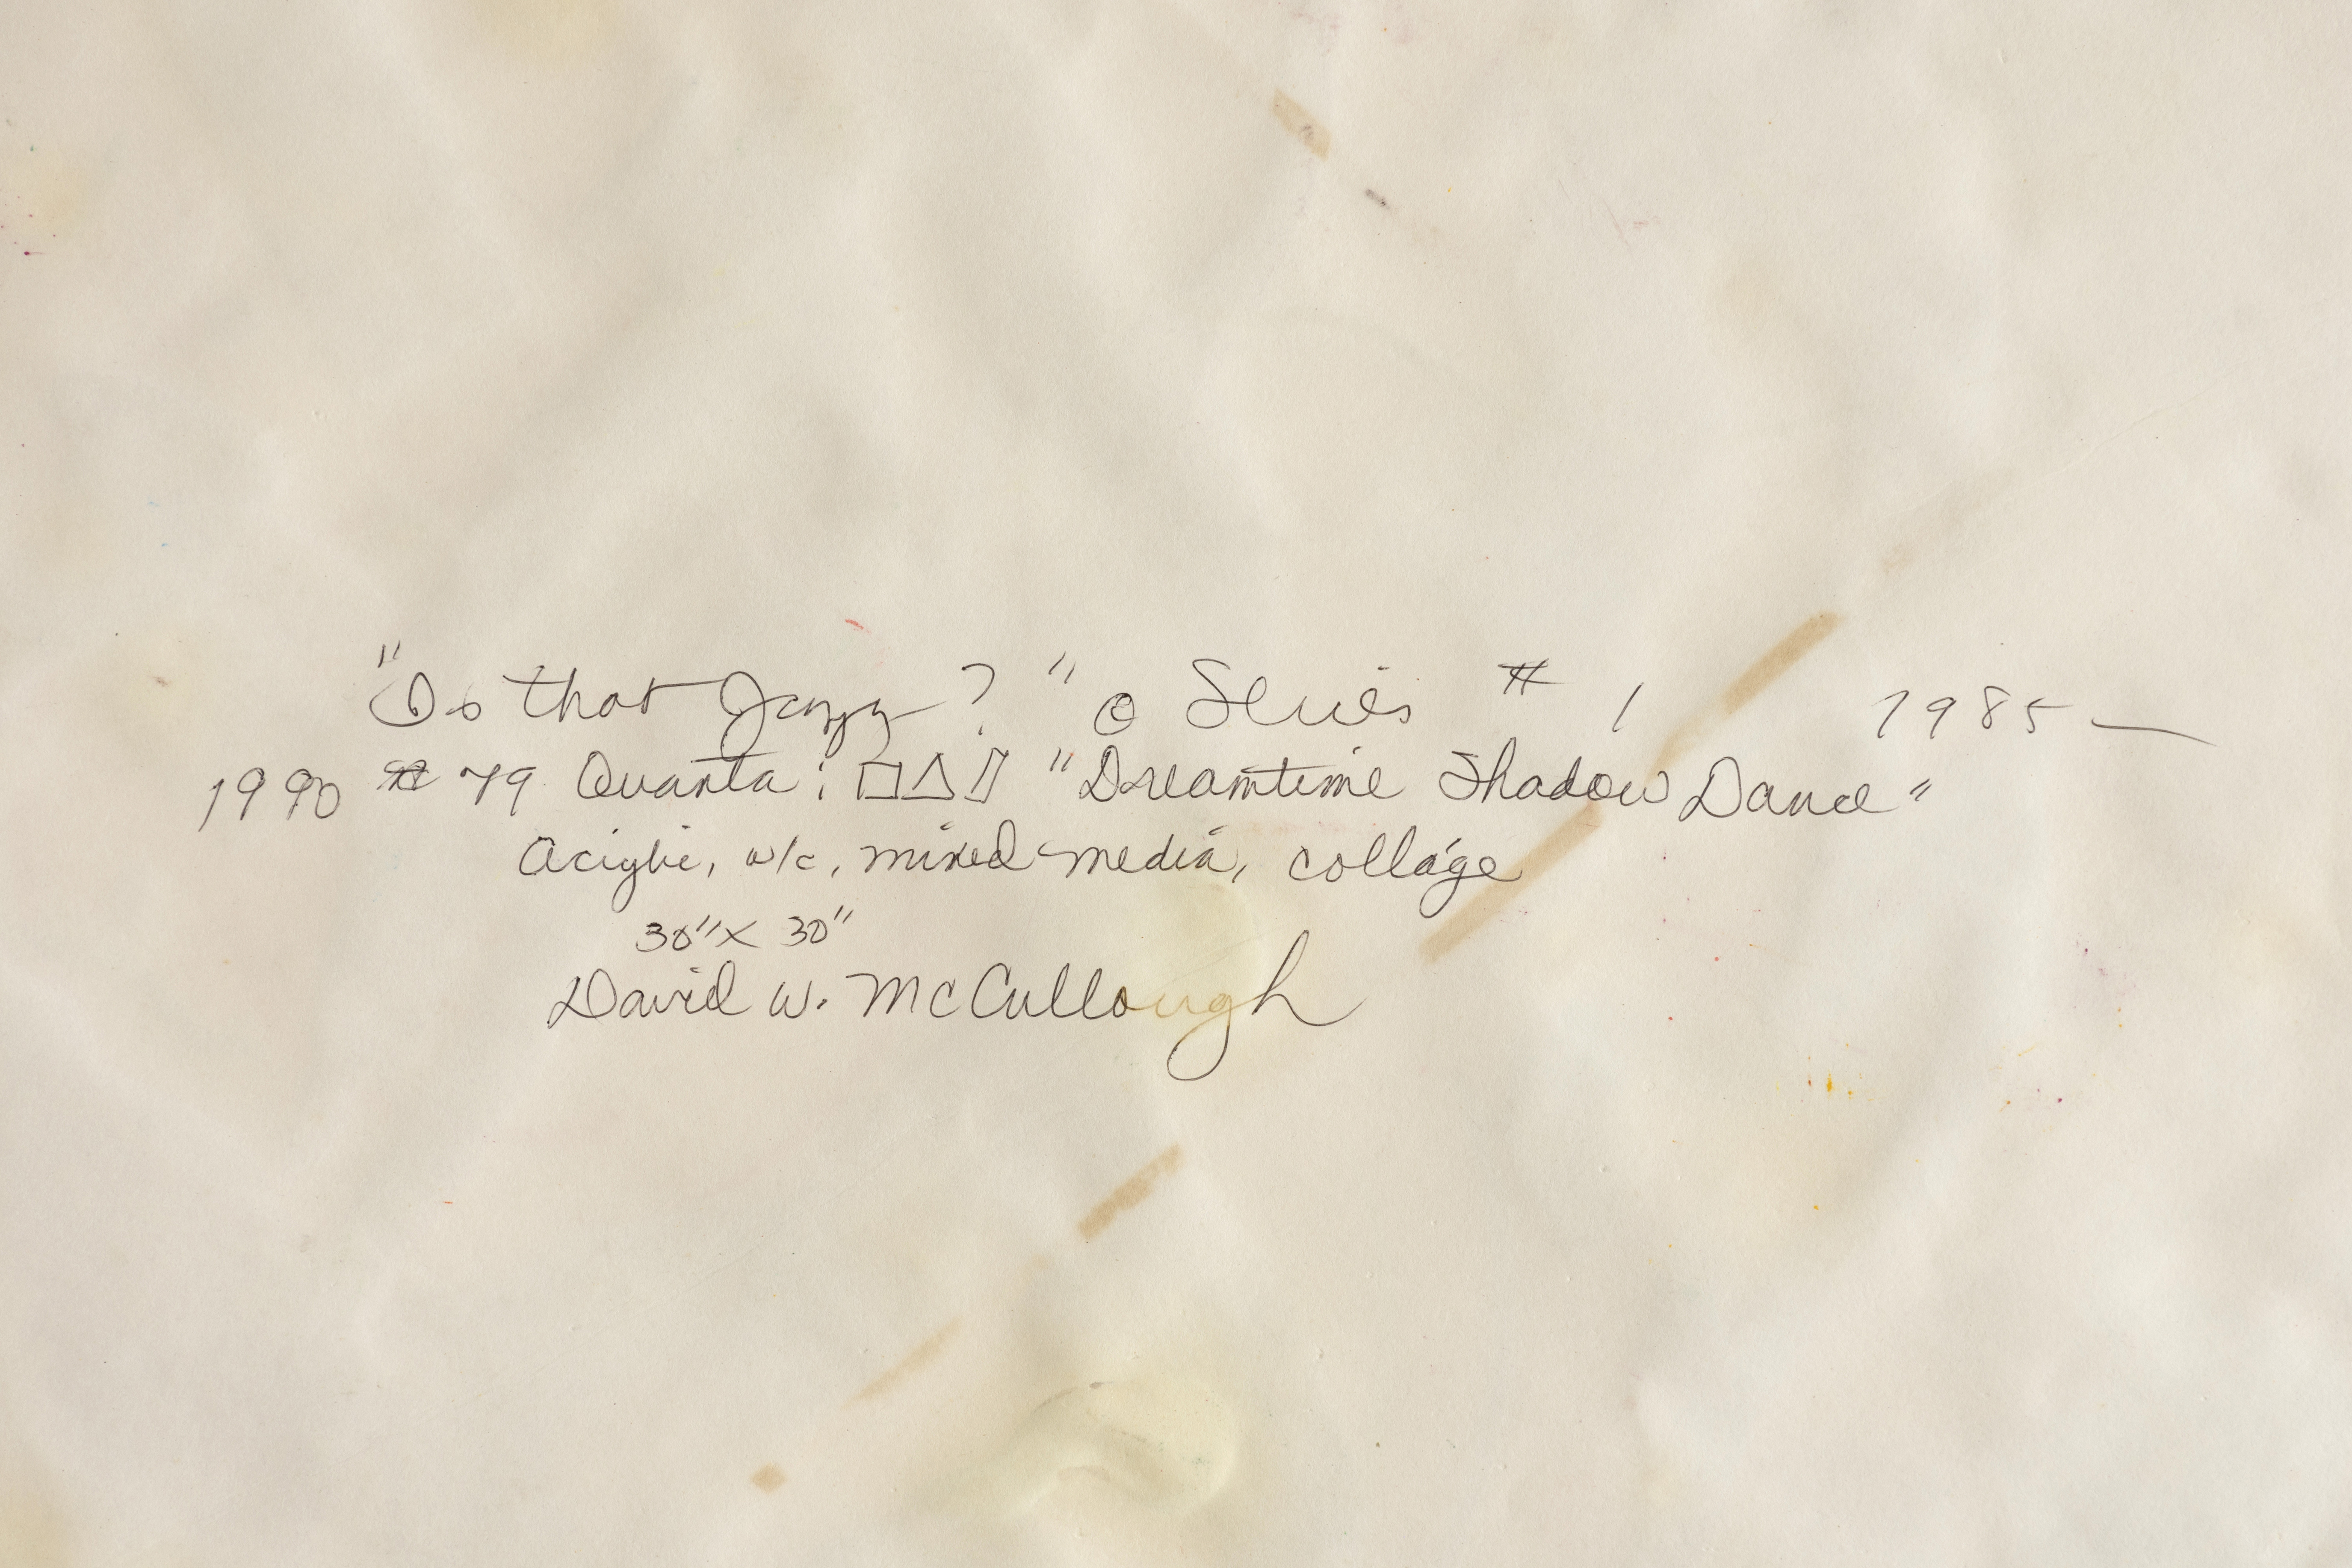 "Is that Jazz?" O Series # 1 1985—
1990 # 79 Quanta: □△▯ "Dreamtime Shadow Dance"
Acrylic, w/c, mixed-media, collage
30" X 30"
David W. McCullough